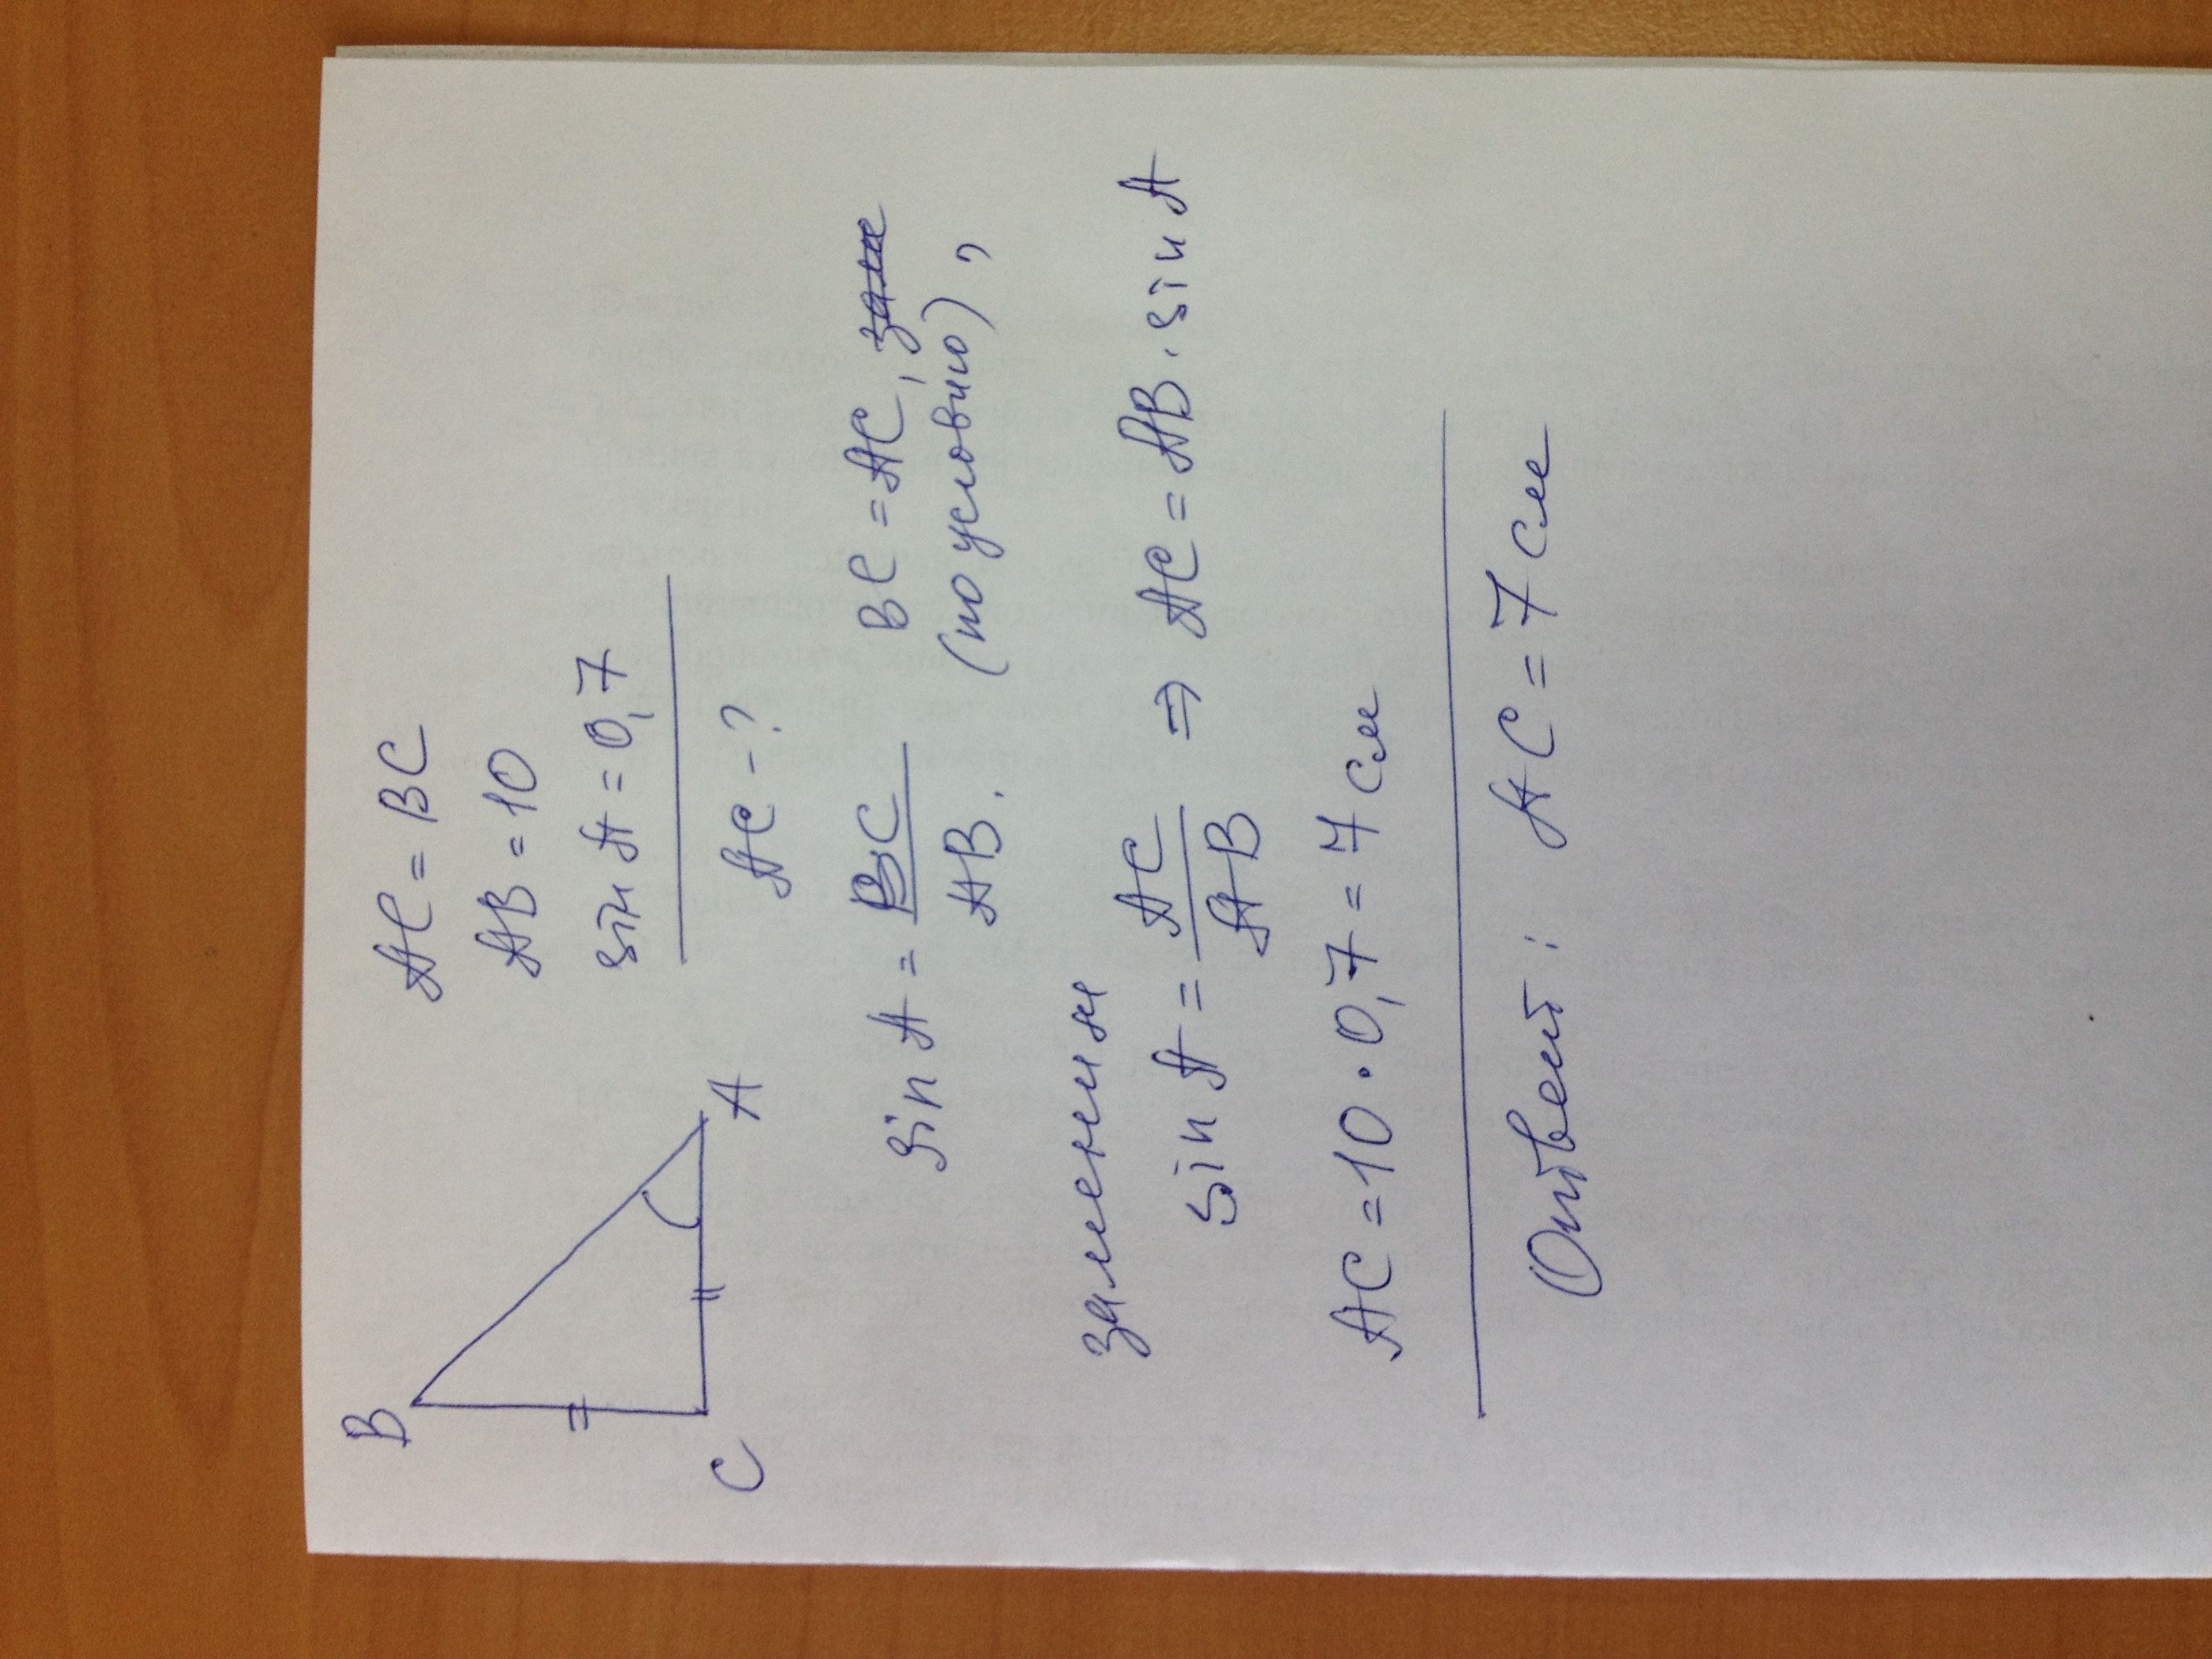 B
C
A
AC = BC
AB = 10
sin A = 0,7
AC - ?
sin A = BC / AB. BC = AC, заме
(по условию),
заменим
sin A = AC / AB ⇒ AC = AB · sin A
AC = 10 · 0,7 = 7 см
Ответ: AC = 7 см